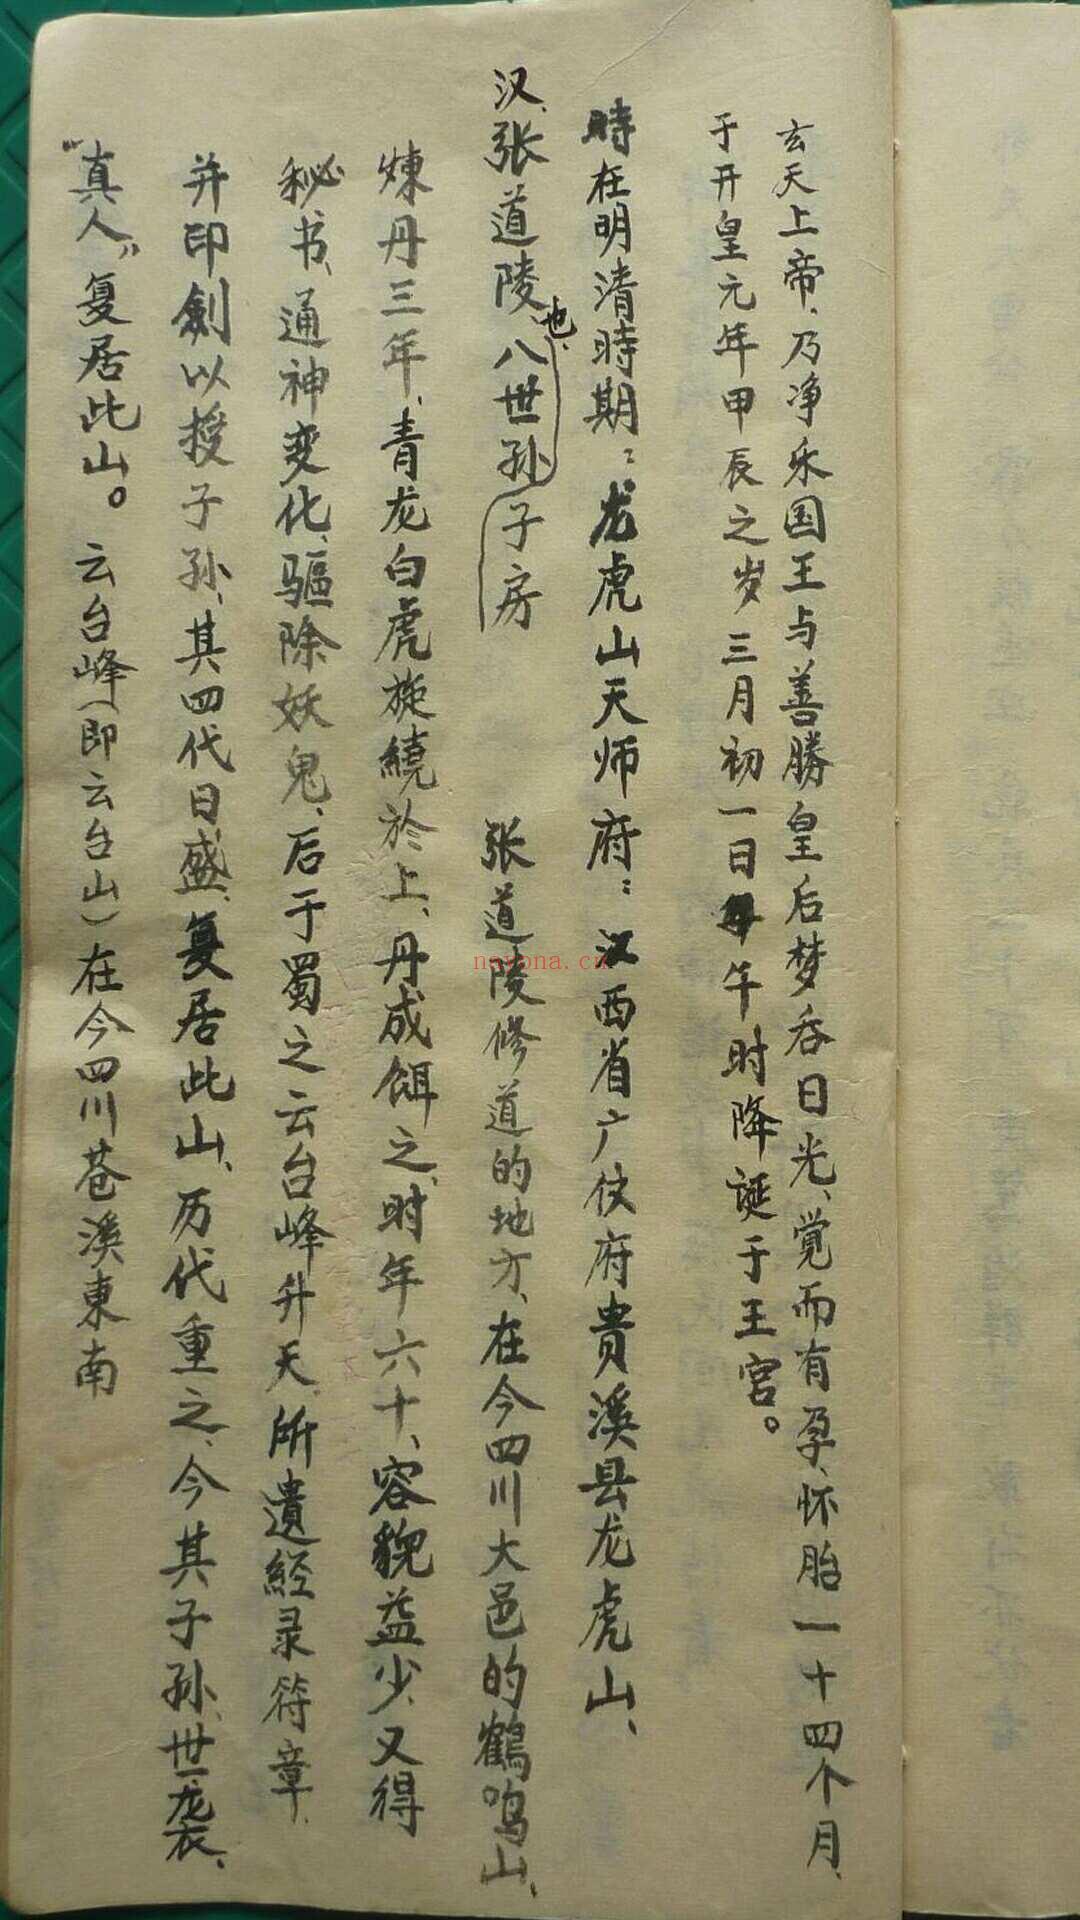 玄天上帝、乃净乐国王与善勝皇后梦吞日光、觉而有孕、怀胎一十四个月、
于开皇元年甲辰之岁三月初一日午时降诞于王宫。
時在明清時期：龙虎山天师府：江西省广仗府貴溪县龙虎山、
汉、张道陵、八世孙子房也、 张道陵修道的地方、在今四川大邑的鶴鸣山、
煉丹三年、青龙白虎旋繞於上、丹成餌之、时年六十、容貌益少、又得
秘书、通神变化、驅除妖鬼、后于蜀之云台峰升天、所遺経录符章、
并印劍以授子孙、其四代日盛、复居此山、历代重之、今其子孙、世袭、
“真人”复居此山。云台峰（即云台山）在今四川苍溪東南
nayona.cn